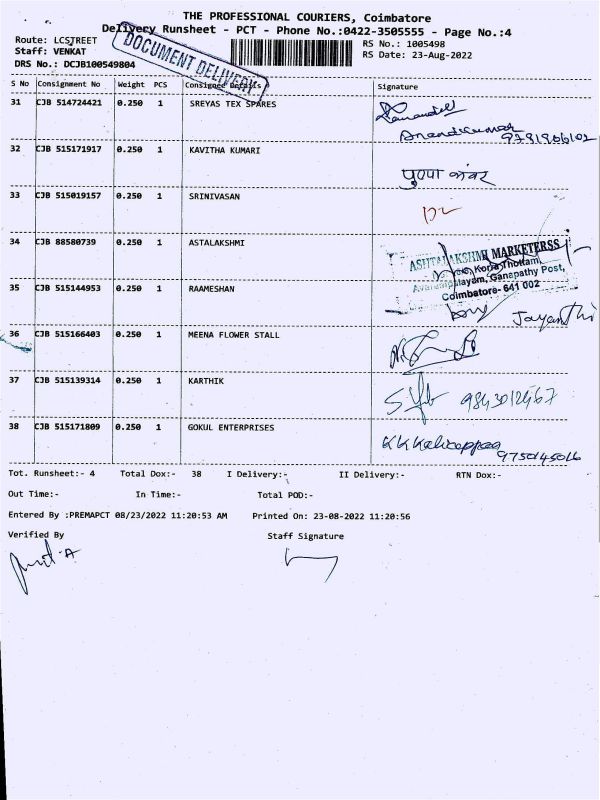 THE PROFESSIONAL COURIERS, Coimbatore
Delivery Runsheet - PCT - Phone No.:0422-3505555 - Page No.:4
Route: LCSTREET
RS No.: 1005498
Staff: VENKAT
RS Date: 23-Aug-2022
DRS No.: DCJB100549804
DOCUMENT DELIVERY
S No Consignment No Weight PCS Consignee Details Signature
31 CJB 514724421 0.250 1 SREYAS TEX SPARES
Anandkumar
9791906102
32 CJB 515171917 0.250 1 KAVITHA KUMARI
पुष्पा कंवर
33 CJB 515019157 0.250 1 SRINIVASAN
34 CJB 88580739 0.250 1 ASTALAKSHMI
ASHTALAKSHMI MARKETERSS
Thottam,
Ganapathy Post,
Coimbatore- 641 002
35 CJB 515144953 0.250 1 RAAMESHAN
Jayanthi
36 CJB 515166403 0.250 1 MEENA FLOWER STALL
37 CJB 515139314 0.250 1 KARTHIK
9843012467
38 CJB 515171809 0.250 1 GOKUL ENTERPRISES
9750145016
Tot. Runsheet:- 4 Total Dox:- 38 I Delivery:- II Delivery:- RTN Dox:-
Out Time:- In Time:- Total POD:-
Entered By :PREMAPCT 08/23/2022 11:20:53 AM Printed On: 23-08-2022 11:20:56
Verified By Staff Signature